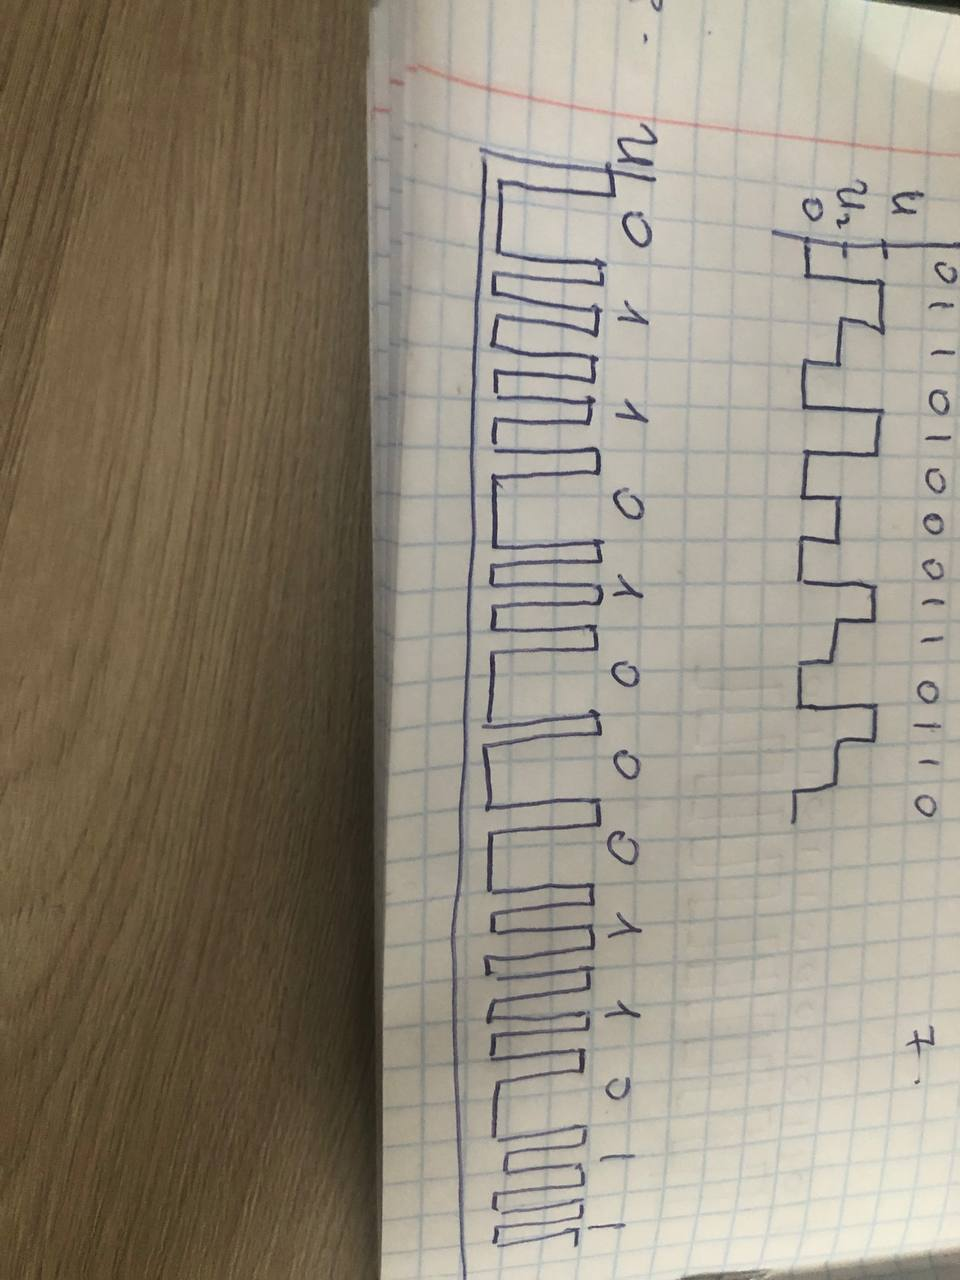 0 1 1 0 1 0 0 0 1 1 0 1 1 0 7.
u
u₂
0
u 0 1 1 0 1 0 0 0 1 1 0 1 1